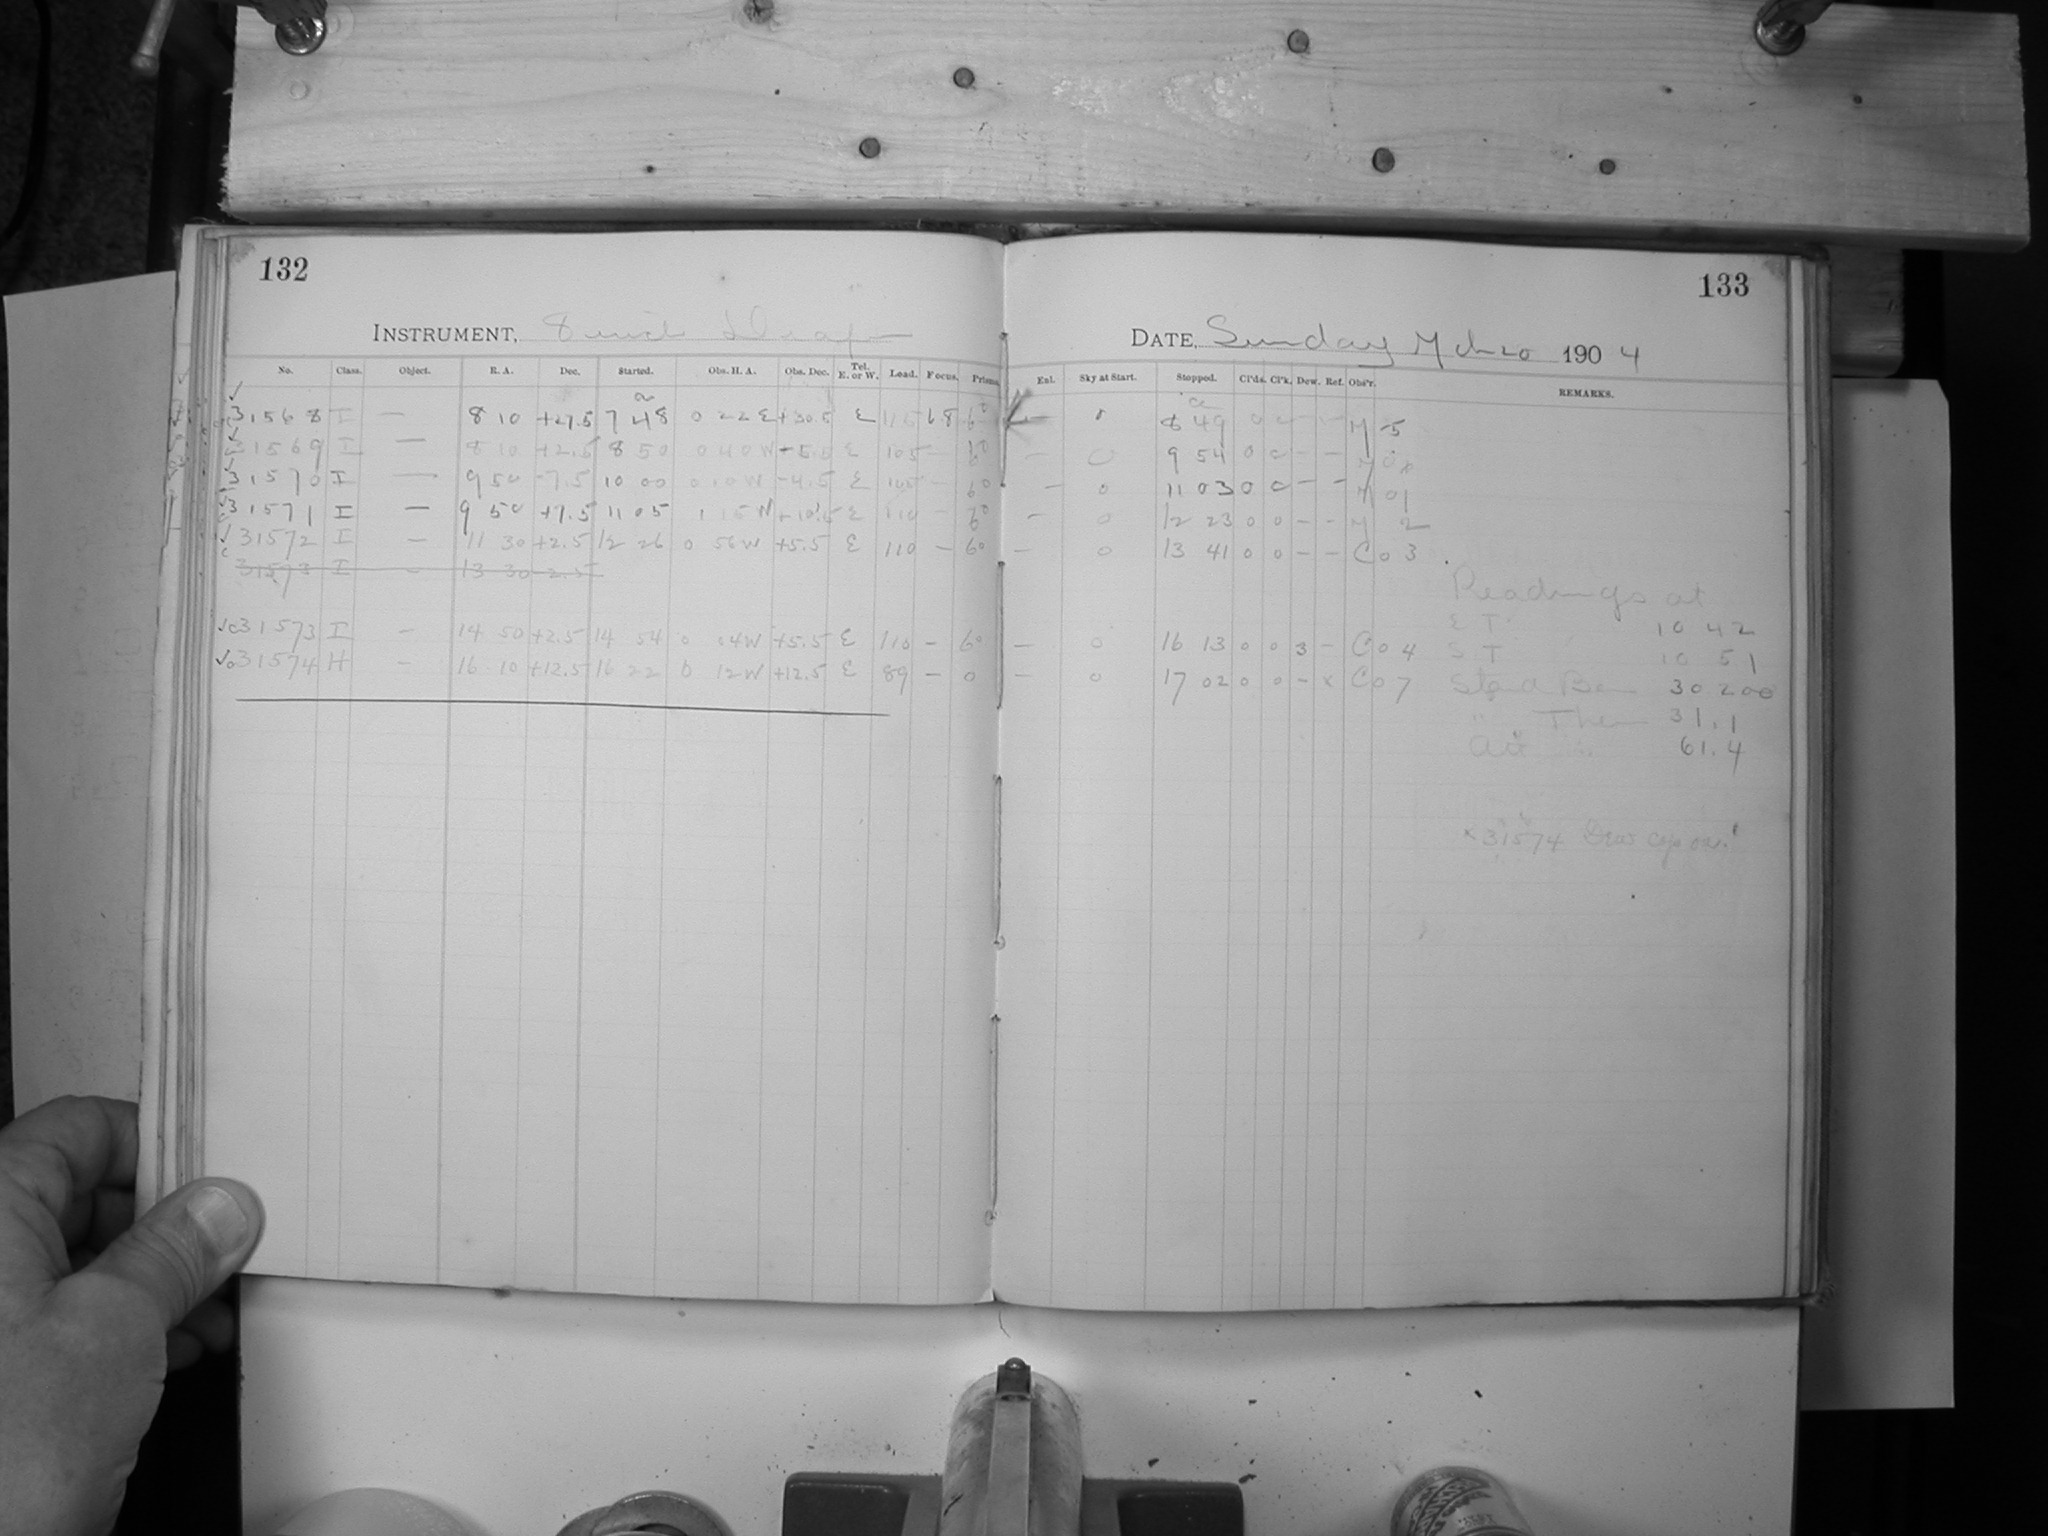 132
INSTRUMENT, 8 inch Draper
No. Class. Object. R. A. Dec. Started. Obs. H. A. Obs. Dec. Tel. E. or W. Lead. Focus. Prisms.
31568 I — 8 10 +27.5 7 48 0 22 E +30.5 E 115 68 6°
31569 I — 8 10 +2.5 8 50 0 40 W E 105 — 6°
31570 I — 9 50 -7.5 10 00 0 10 W -4.5 E 105 — 6°
31571 I — 9 50 +7.5 11 05 1 15 W +10.5 E 110 — 6°
31572 I — 11 30 +2.5 12 26 0 56 W +5.5 E 110 — 6°
31573 I — 13 30 -2.5
31573 I — 14 50 +2.5 14 54 0 04 W +5.5 E 110 — 6°
31574 H — 16 10 +12.5 16 22 0 12 W +12.5 E 89 — 0
133
DATE, Sunday Mch 20 1904
Enl. Sky at Start. Stopped. Cl'ds. Cl'k. Dew. Ref. Obs'r. REMARKS.
— 8 49 0 — — M 5
— 0 9 54 0 0 — — M
— 0 11 03 0 0 — — M 01
— 0 12 23 0 0 — — M 2
— 0 13 41 0 0 — — Co 3
— 0 16 13 0 0 3 — Co 4
— 0 17 02 0 0 — x Co 7
Readings at
E T 10 42
S T 10 51
Stand Bar 30.200
" Ther 31.1
Att " 61.4
x 31574 Dew cap on.